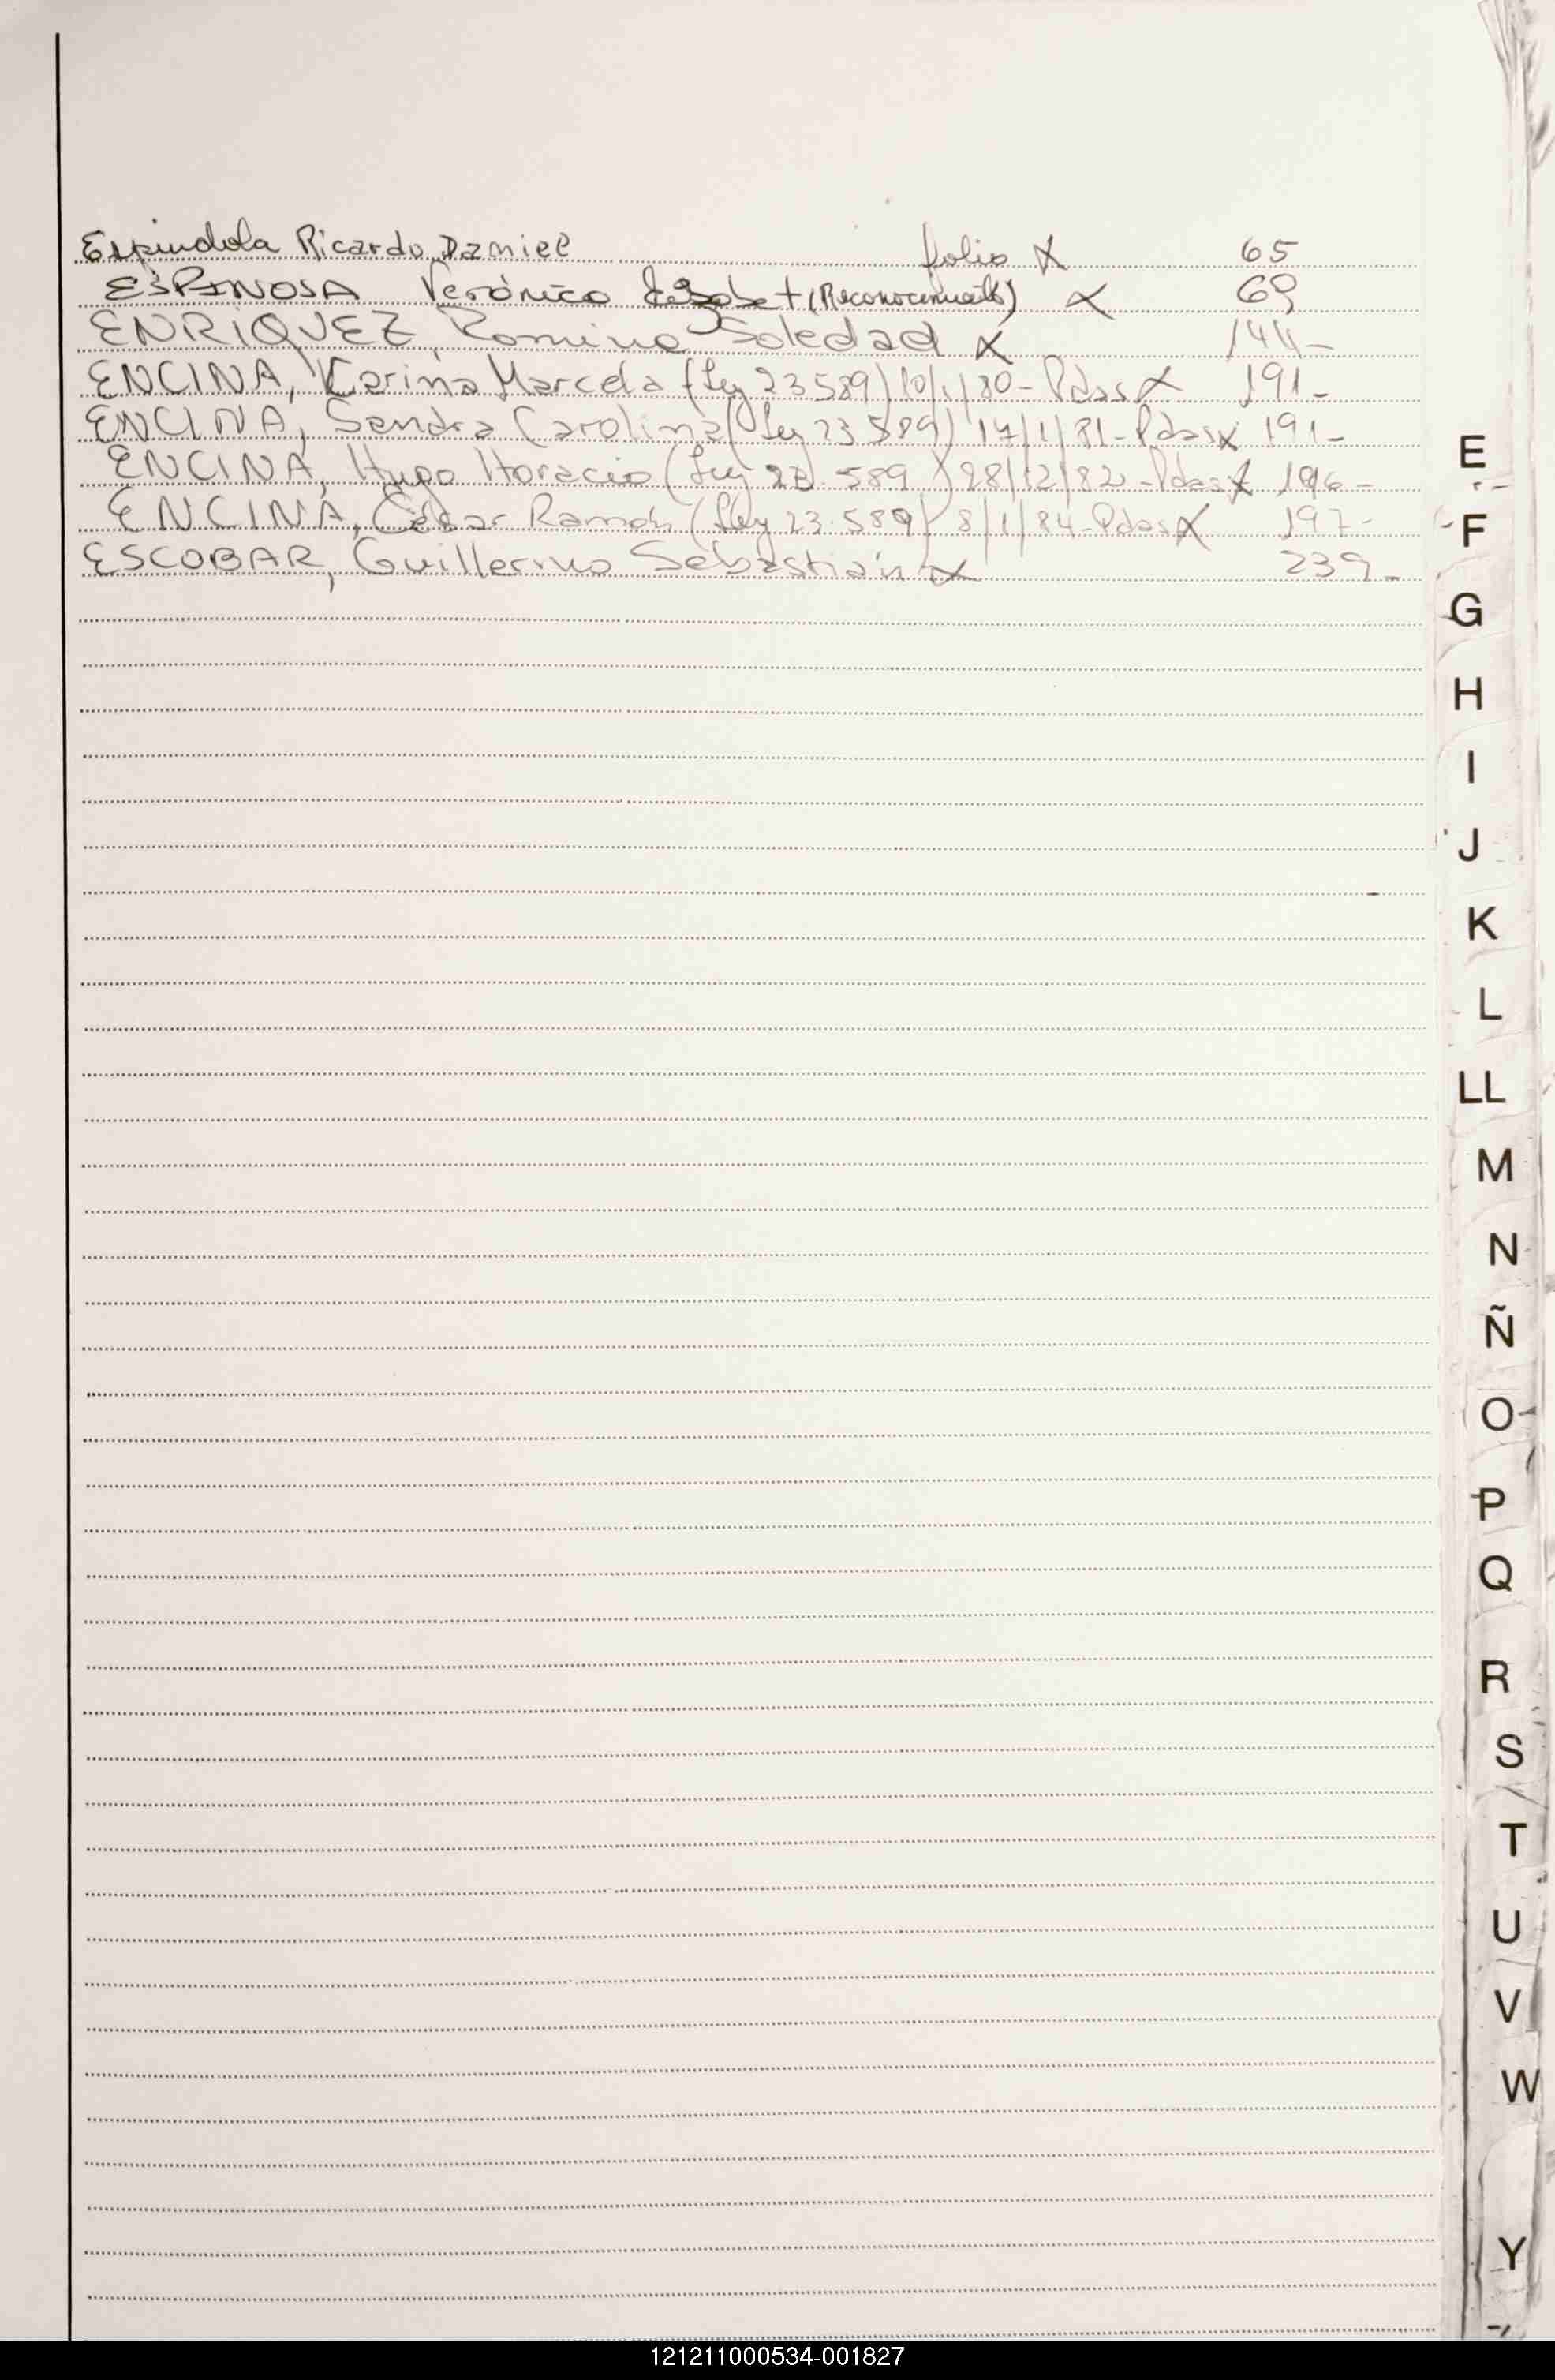 Espindola Ricardo Daniel folio X 65
ESPINOSA Verónica + (Reconocimiento) X 69
ENRIQUEZ, Romina Soledad X 144-
ENCINA, Karina Marcela (Ley 23589) 10/1/80-Pdas X 191-
ENCINA, Sandra Carolina (Ley 23589) 17/1/81-Pdas X 191-
ENCINA, Hugo Horacio (Ley 23.589) 28/12/82-Pdas X 196-
ENCINA, César Ramón (Ley 23.589) 8/1/84-Pdas X 197-
ESCOBAR, Guillermo Sebastián X 239-
E
F
G
H
I
J
K
L
LL
M
N
Ñ
O
P
Q
R
S
T
U
V
W
Y
121211000534-001827